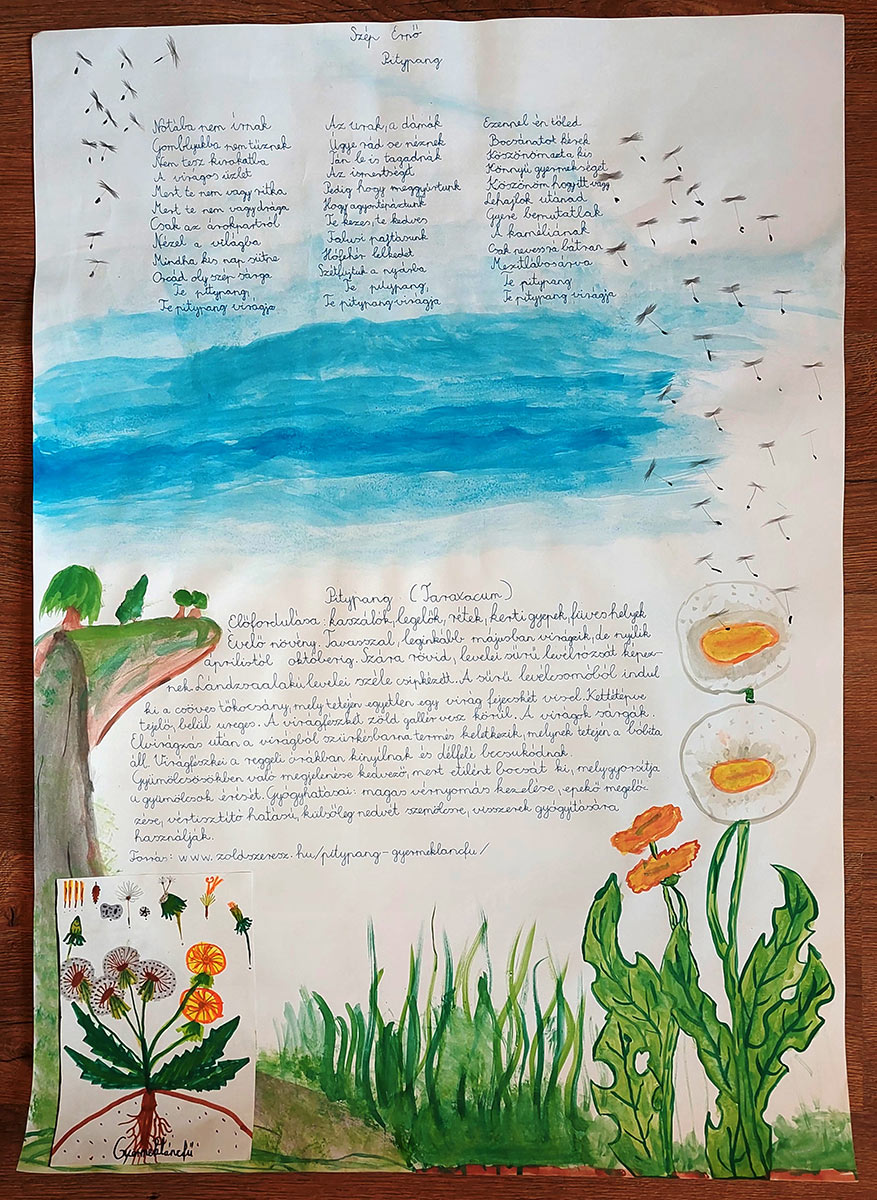 Szép Ernő
Pitypang
Nótába nem írnak
Gomblyukba nem tűznek
Nem tesz kirakatba
A virágos üzlet
Mert te nem vagy ritka
Mert te nem vagy drága
Csak az árokpartról
Nézel a világba
Mintha kis nap sütne
Orcád oly szép sárga
Te pitypang,
Te pitypang virágja
Az urak, a dámák
Ügye rád se néznek
Tán le is tagadnák
Az ismertséget
Pedig hogy meggyúrtunk
Hogy agyontépáztunk
Te kezes, te kedves
Falusi pajtásunk
Hófehér lelkedet
Szétfujtuk a nyárba
Te pitypang,
Te pitypang virágja
Ezennel én tőled
Bocsánatot kérek
Köszönöm azt a kis
Könnyű gyermekséget
Köszönöm hogy itt vagy
Lehajlok utánad
Gyere bemutatlak
A kaméliának
Csak nevess rá bátran
Mezítlábos árva
Te pitypang
Te pitypang virágja
Pitypang (Taraxacum)
Előfordulása: kaszálók, legelők, rétek, kerti gyepek, füves helyek
Évelő növény. Tavasszal, leginkább májusban virágzik, de nyílik
áprilistól októberig. Szára rövid, levelei sűrű levélrózsát képez-
nek. Lándzsaalakú levelei széle csipkézett. A sűrű levélcsomóból indul
ki a csöves tőkocsány, mely tetején egyetlen egy virág fejecskét visel. Kettétépve
tejelő, belül üreges. A virágfészket zöld gallér vesz körül. A virágok sárgák.
Elvirágzás után a virágból szürkésbarna termés keletkezik, melynek tetején a bóbita
áll. Virágfészkei a reggeli órákban kinyílnak és délfelé becsukódnak.
Gyümölcsösökben való megjelenése kedvező, mert etilént bocsát ki, mely gyorsítja
a gyümölcsök érését. Gyógyhatásai: magas vérnyomás kezelése, epekő megelő-
zése, vértisztító hatású, külsőleg nedvét szemölcsre, visszerek gyógyítására
használják.
Forrás: www.zoldszeresz.hu/pitypang-gyermeklancfu/
Gyermekláncfű